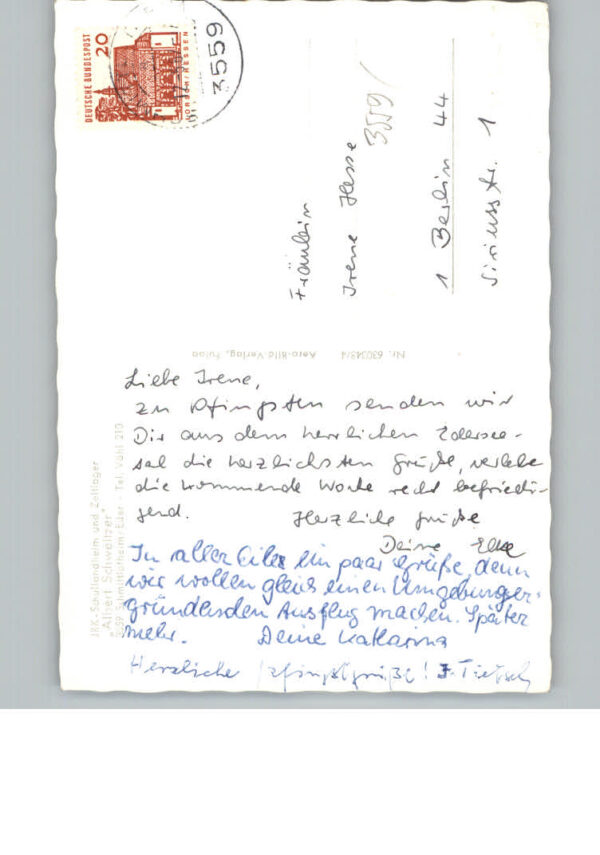 DEUTSCHE BUNDESPOST
20
LORSCH/HESSEN
3559
Fräulein
Irene Hesse
3559/
1 Berlin 44
Siriusstr. 1
Nr. 630348/4 Aero-Bild-Verlag, Fulda
JRK-Schullandheim und Zeltlager
"Albert Schweitzer"
3559 Schmittlotheim/Eder - Tel. Vöhl 210
Liebe Irene,
zu Pfingsten senden wir
Dir aus dem herrlichen Edersee-
tal die herzlichsten Grüße, verlebe
die kommende Woche recht befriedi-
gend. Herzliche Grüße
Deine Elke
In aller Eile ein paar Grüße, denn
wir wollen gleich einen Umgebunger-
gründenden Ausflug machen. Später
mehr. Deine Katharina
Herzliche Pfingstgrüße!